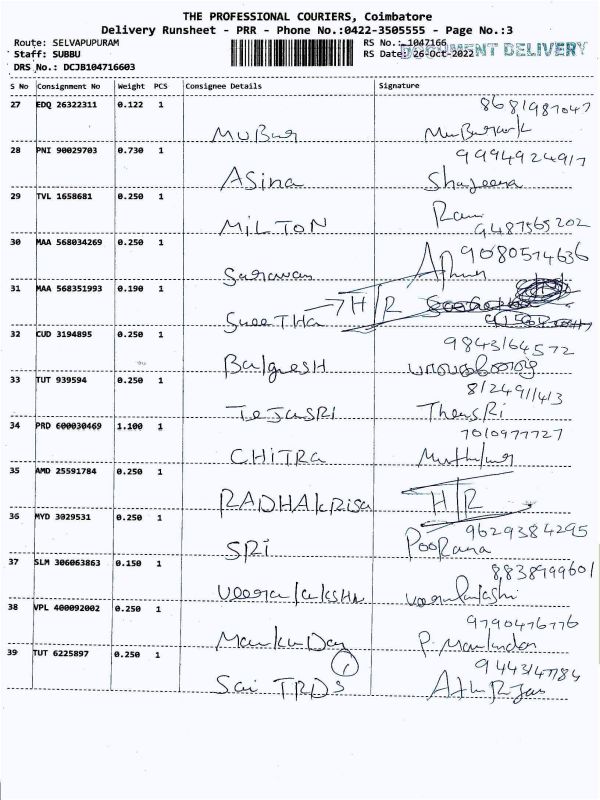 THE PROFESSIONAL COURIERS, Coimbatore
Delivery Runsheet - PRR - Phone No.:0422-3505555 - Page No.:3
Route: SELVAPUPURAM RS No.: 1047166
Staff: SUBBU RS Date: 26-Oct-2022 DOCUMENT DELIVERY
DRS No.: DCJB104716603
S No Consignment No Weight PCS Consignee Details Signature
27 EDQ 26322311 0.122 1 8681987047
Mubarak
28 PNI 90029703 0.730 1 9994924917
Asina Shajeena
29 TVL 1658681 0.250 1 Ram
MiLTON 9487565202
30 MAA 568034269 0.250 1 9080574636
Saravanan
31 MAA 568351993 0.190 1 H/R
SweeTHa
32 CUD 3194895 0.250 1 9843164572
33 TUT 939594 0.250 1 8124911413
TeJaSRi ThenSRi
34 PRD 600030469 1.100 1 7010977727
CHiTRA
35 AMD 25591784 0.250 1 H/R
RADHAkRisa
36 MYD 3029531 0.250 1 9629384295
SRi PooRana
37 SLM 306063863 0.150 1 8838999601
38 VPL 400092002 0.250 1 9790476776
39 TUT 6225897 0.250 1 1 9443147784
Sai TRDS